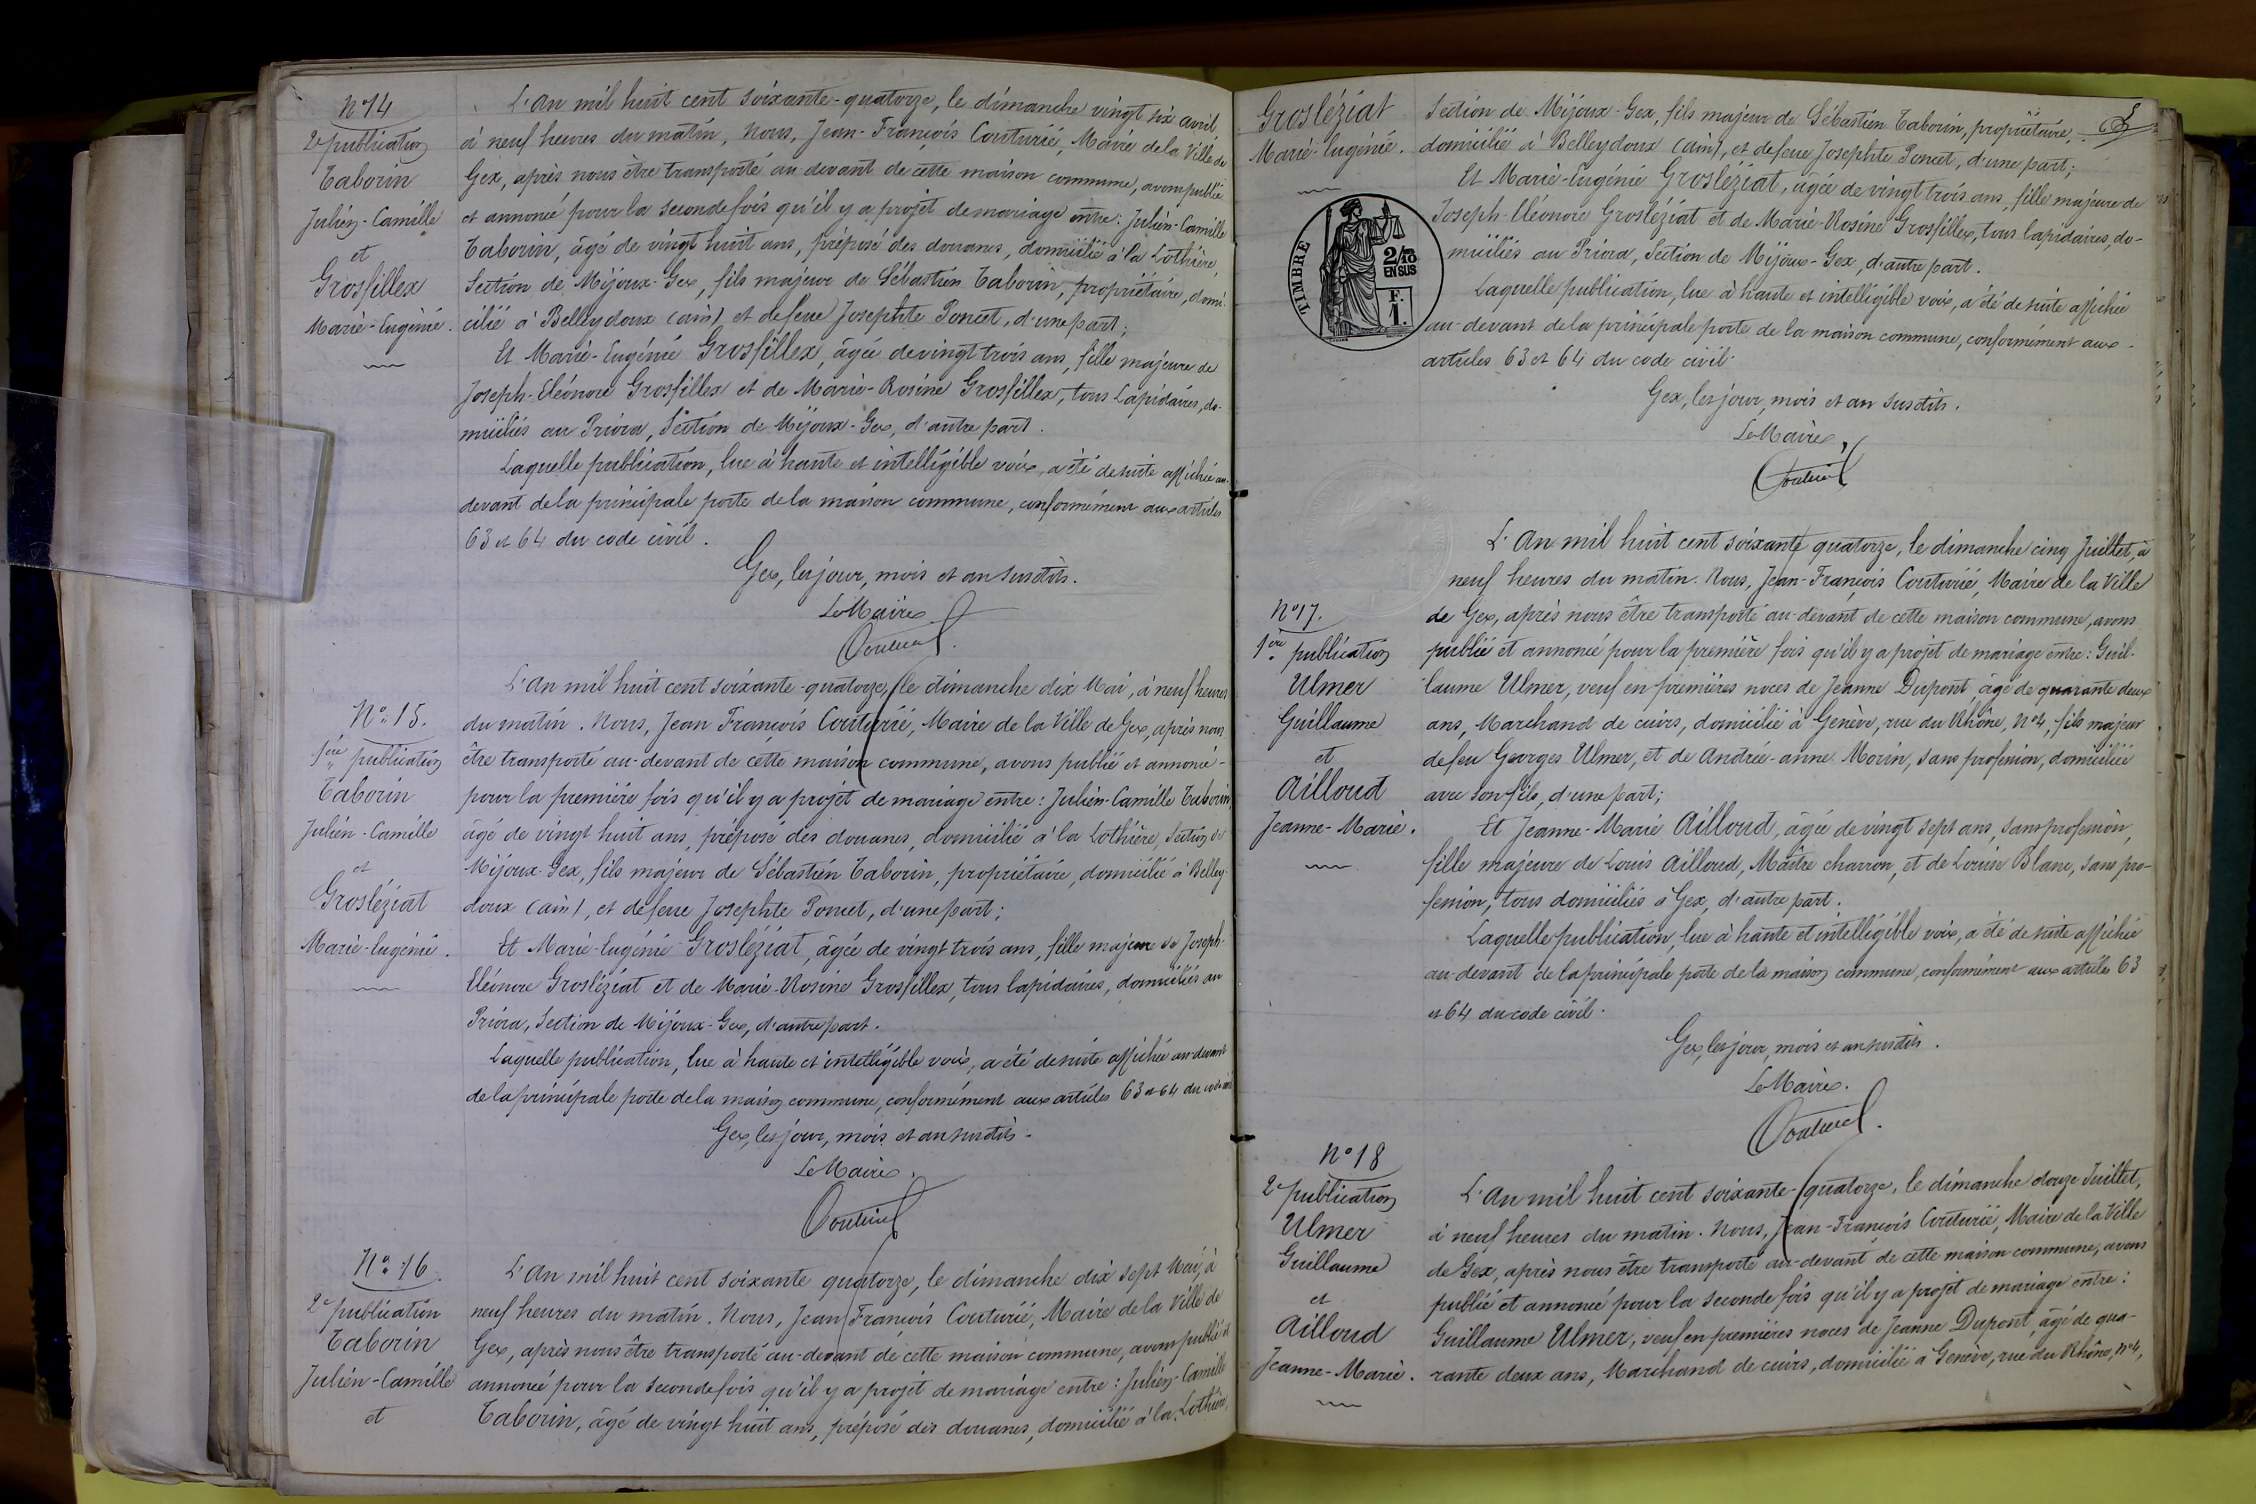 N° 14
2e publication
Taborin
Julien-Camille
et
Grosfillex
Marie-Eugénie.
L'An mil huit cent soixante-quatorze, le dimanche vingt six avril
à neuf heures du matin, Nous, Jean-François Couturié, Maire de la Ville de
Gex, après nous être transporté au devant de cette maison commune, avons publié
et annoncé pour la seconde fois qu'il y a projet de mariage entre: Julien-Camille
Taborin, âgé de vingt huit ans, préposé des douanes, domicilié à la Lothière,
Section de Mijoux-Gex, fils majeur de Sébastien Taborin, propriétaire, domi-
cilié à Belleydoux (ain) et de feue Josephte Poncet, d'une part;
Et Marie-Eugénie Grosfillex, âgée de vingt trois ans, fille majeure de
Joseph-Eléonore Grosfillex et de Marie-Rosine Grosfillex, tous Lapidaires, do-
miciliés au Priora, Section de Mijoux-Gex, d'autre part.
Laquelle publication, lue à haute et intelligible voix, a été de suite affichée au-
devant de la principale porte de la maison commune, conformément aux articles
63 et 64 du code civil.
Gex, les jour, mois et an susdits.
Le Maire
Couturié
N° 15.
1ère publication
Taborin
Julien-Camille
et
Grosléziat
Marie-Eugénie.
L'An mil huit cent soixante-quatorze, le dimanche dix Mai, à neuf heures
du matin. Nous, Jean François Couturié, Maire de la Ville de Gex, après nous
être transporté au-devant de cette maison commune, avons publié et annoncé-
pour la première fois qu'il y a projet de mariage entre: Julien-Camille Taborin,
âgé de vingt huit ans, préposé des douanes, domicilié à la Lothière, Section de
Mijoux-Gex, fils majeur de Sébastien Taborin, propriétaire, domicilié à Belley-
doux (ain), et de feue Josephte Poncet, d'une part;
Et Marie-Eugénie Grosléziat, âgée de vingt trois ans, fille majeure de Joseph-
Eléonore Grosléziat et de Marie-Rosine Grosfillex, tous lapidaires, domiciliés au
Priora, Section de Mijoux-Gex, d'autre part.
Laquelle publication, lue à haute et intelligible voix, a été de suite affichée au-devant
de la principale porte de la maison commune, conformément aux articles 63 et 64 du code civil
Gex, les jour, mois et an susdits.
Le Maire.
Couturié
N° 16.
2e publication
Taborin
Julien-Camille
et
L'An mil huit cent soixante quatorze, le dimanche dix sept Mai, à
neuf heures du matin. Nous, Jean François Couturié, Maire de la Ville de
Gex, après nous être transporté au-devant de cette maison commune, avons publié et
annoncé pour la seconde fois qu'il y a projet de mariage entre: Julien-Camille
Taborin, âgé de vingt huit ans, préposé des douanes, domicilié à la Lothière,
Grosléziat
Marie-Eugénie.
Section de Mijoux-Gex, fils majeur de Sébastien Taborin, propriétaire,
domicilié à Belleydoux (ain), et de feue Josephte Poncet, d'une part;
Et Marie-Eugénie Grosléziat, âgée de vingt trois ans, fille majeure de
Joseph-Eléonore Grosléziat et de Marie-Rosine Grosfillex, tous lapidaires, do-
miciliés au Priora, Section de Mijoux-Gex, d'autre part.
Laquelle publication, lue à haute et intelligible voix, a été de suite affichée
au-devant de la principale porte de la maison commune, conformément aux-
articles 63 et 64 du code civil.
TIMBRE
2/10
EN SUS
F.
1.
Gex, les jour, mois et an susdits.
Le Maire,
Couturié
N° 17.
1ère publication
Ulmer
Guillaume
et
Ailloud
Jeanne-Marie.
L'An mil huit cent soixante quatorze, le dimanche cinq Juillet, à
neuf heures du matin. Nous, Jean-François Couturié, Maire de la Ville
de Gex, après nous être transporté au-devant de cette maison commune, avons
publié et annoncé pour la première fois qu'il y a projet de mariage entre: Guil-
laume Ulmer, veuf en premières noces de Jeanne Dupont âgé de quarante deux
ans, Marchand de cuirs, domicilié à Genève, rue du Rhône, N° 4, fils majeur
de feu Georges Ulmer, et de Andrée-anne Morin, sans profession, domiciliée
avec son fils, d'une part;
Et Jeanne-Marie Ailloud, âgée de vingt sept ans, sans profession,
fille majeure de Louis Ailloud, Maître charron, et de Louise Blanc, sans pro-
fession, tous domiciliés à Gex, d'autre part.
Laquelle publication, lue à haute et intelligible voix, a été de suite affichée
au-devant de la principale porte de la maison commune, conformément aux articles 63
et 64 du code civil.
Gex, les jour, mois et an susdits.
Le Maire.
Couturié
N° 18
2e publication
Ulmer
Guillaume
et
Ailloud
Jeanne-Marie.
L'An mil huit cent soixante-quatorze, le dimanche douze Juillet,
à neuf heures du matin. Nous, Jean-François Couturié, Maire de la Ville
de Gex, après nous être transporté au-devant de cette maison commune, avons
publié et annoncé pour la seconde fois qu'il y a projet de mariage entre:
Guillaume Ulmer, veuf en premières noces de Jeanne Dupont, âgé de qua-
rante deux ans, Marchand de cuirs, domicilié à Genève, rue du Rhône, N° 4,